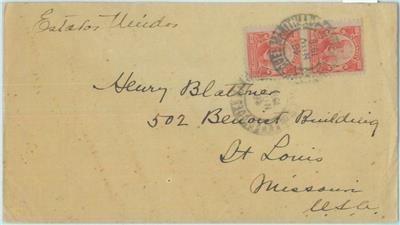 Estados Unidos
Henry Blattner
502 Benoist Building
St Louis
Missouri
U.S.A.